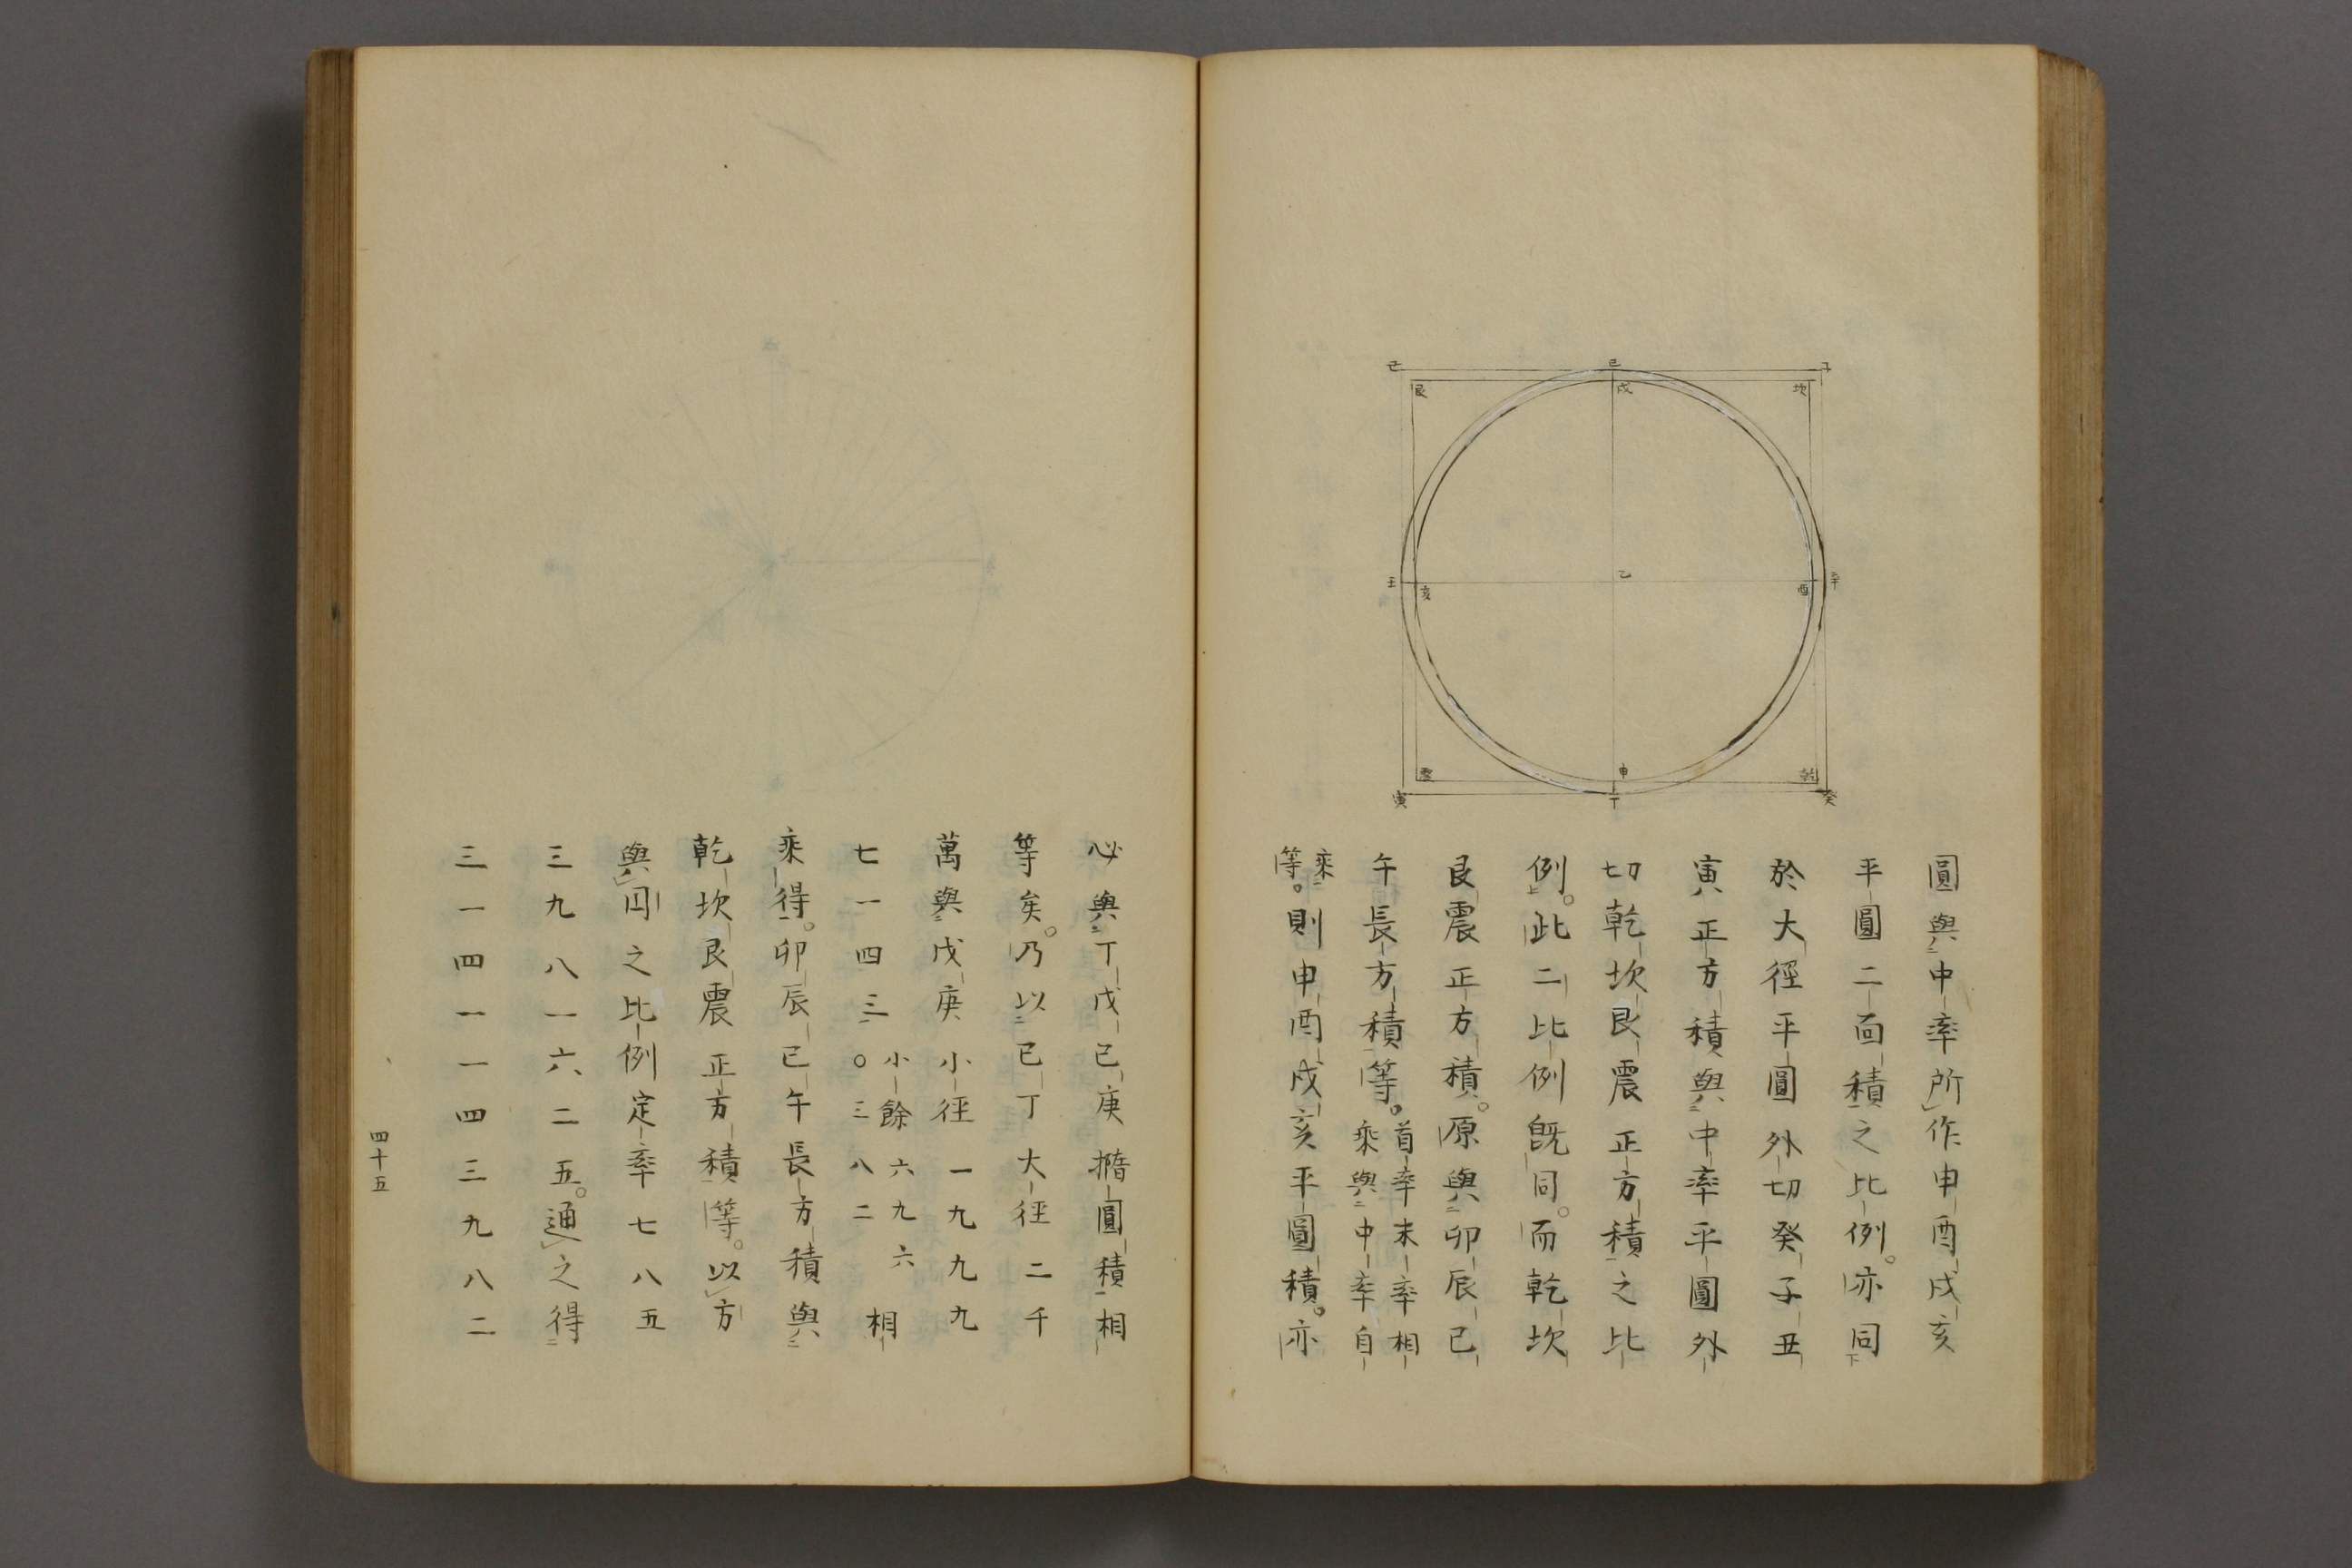 圓與中率所作申酉戌亥
平圓二面積之比例。亦同
於大徑平圓外切癸子丑
寅正方積與中率平圓外
切乾坎艮震正方積之比
例。此二比例既同。而乾坎
艮震正方積。原與卯辰巳
午長方積等。首率末率相
乘與中率自
乘
等。則申酉戌亥平圓積。亦
丑
巳
子
艮
戌
坎
壬
亥
乙
酉
辛
震
申
乾
寅
丁
癸
必與丁戊己庚撱圓積相
等矣。乃以己丁大徑二千
萬與戊庚小徑一九九九
七一四三〇三八二
小餘六九六
相
乘得。卯辰巳午長方積與
乾坎艮震正方積等。以方
與囗之比例定率七八五
三九八一六二五。通之得
三一四一一四三九八二
四十五